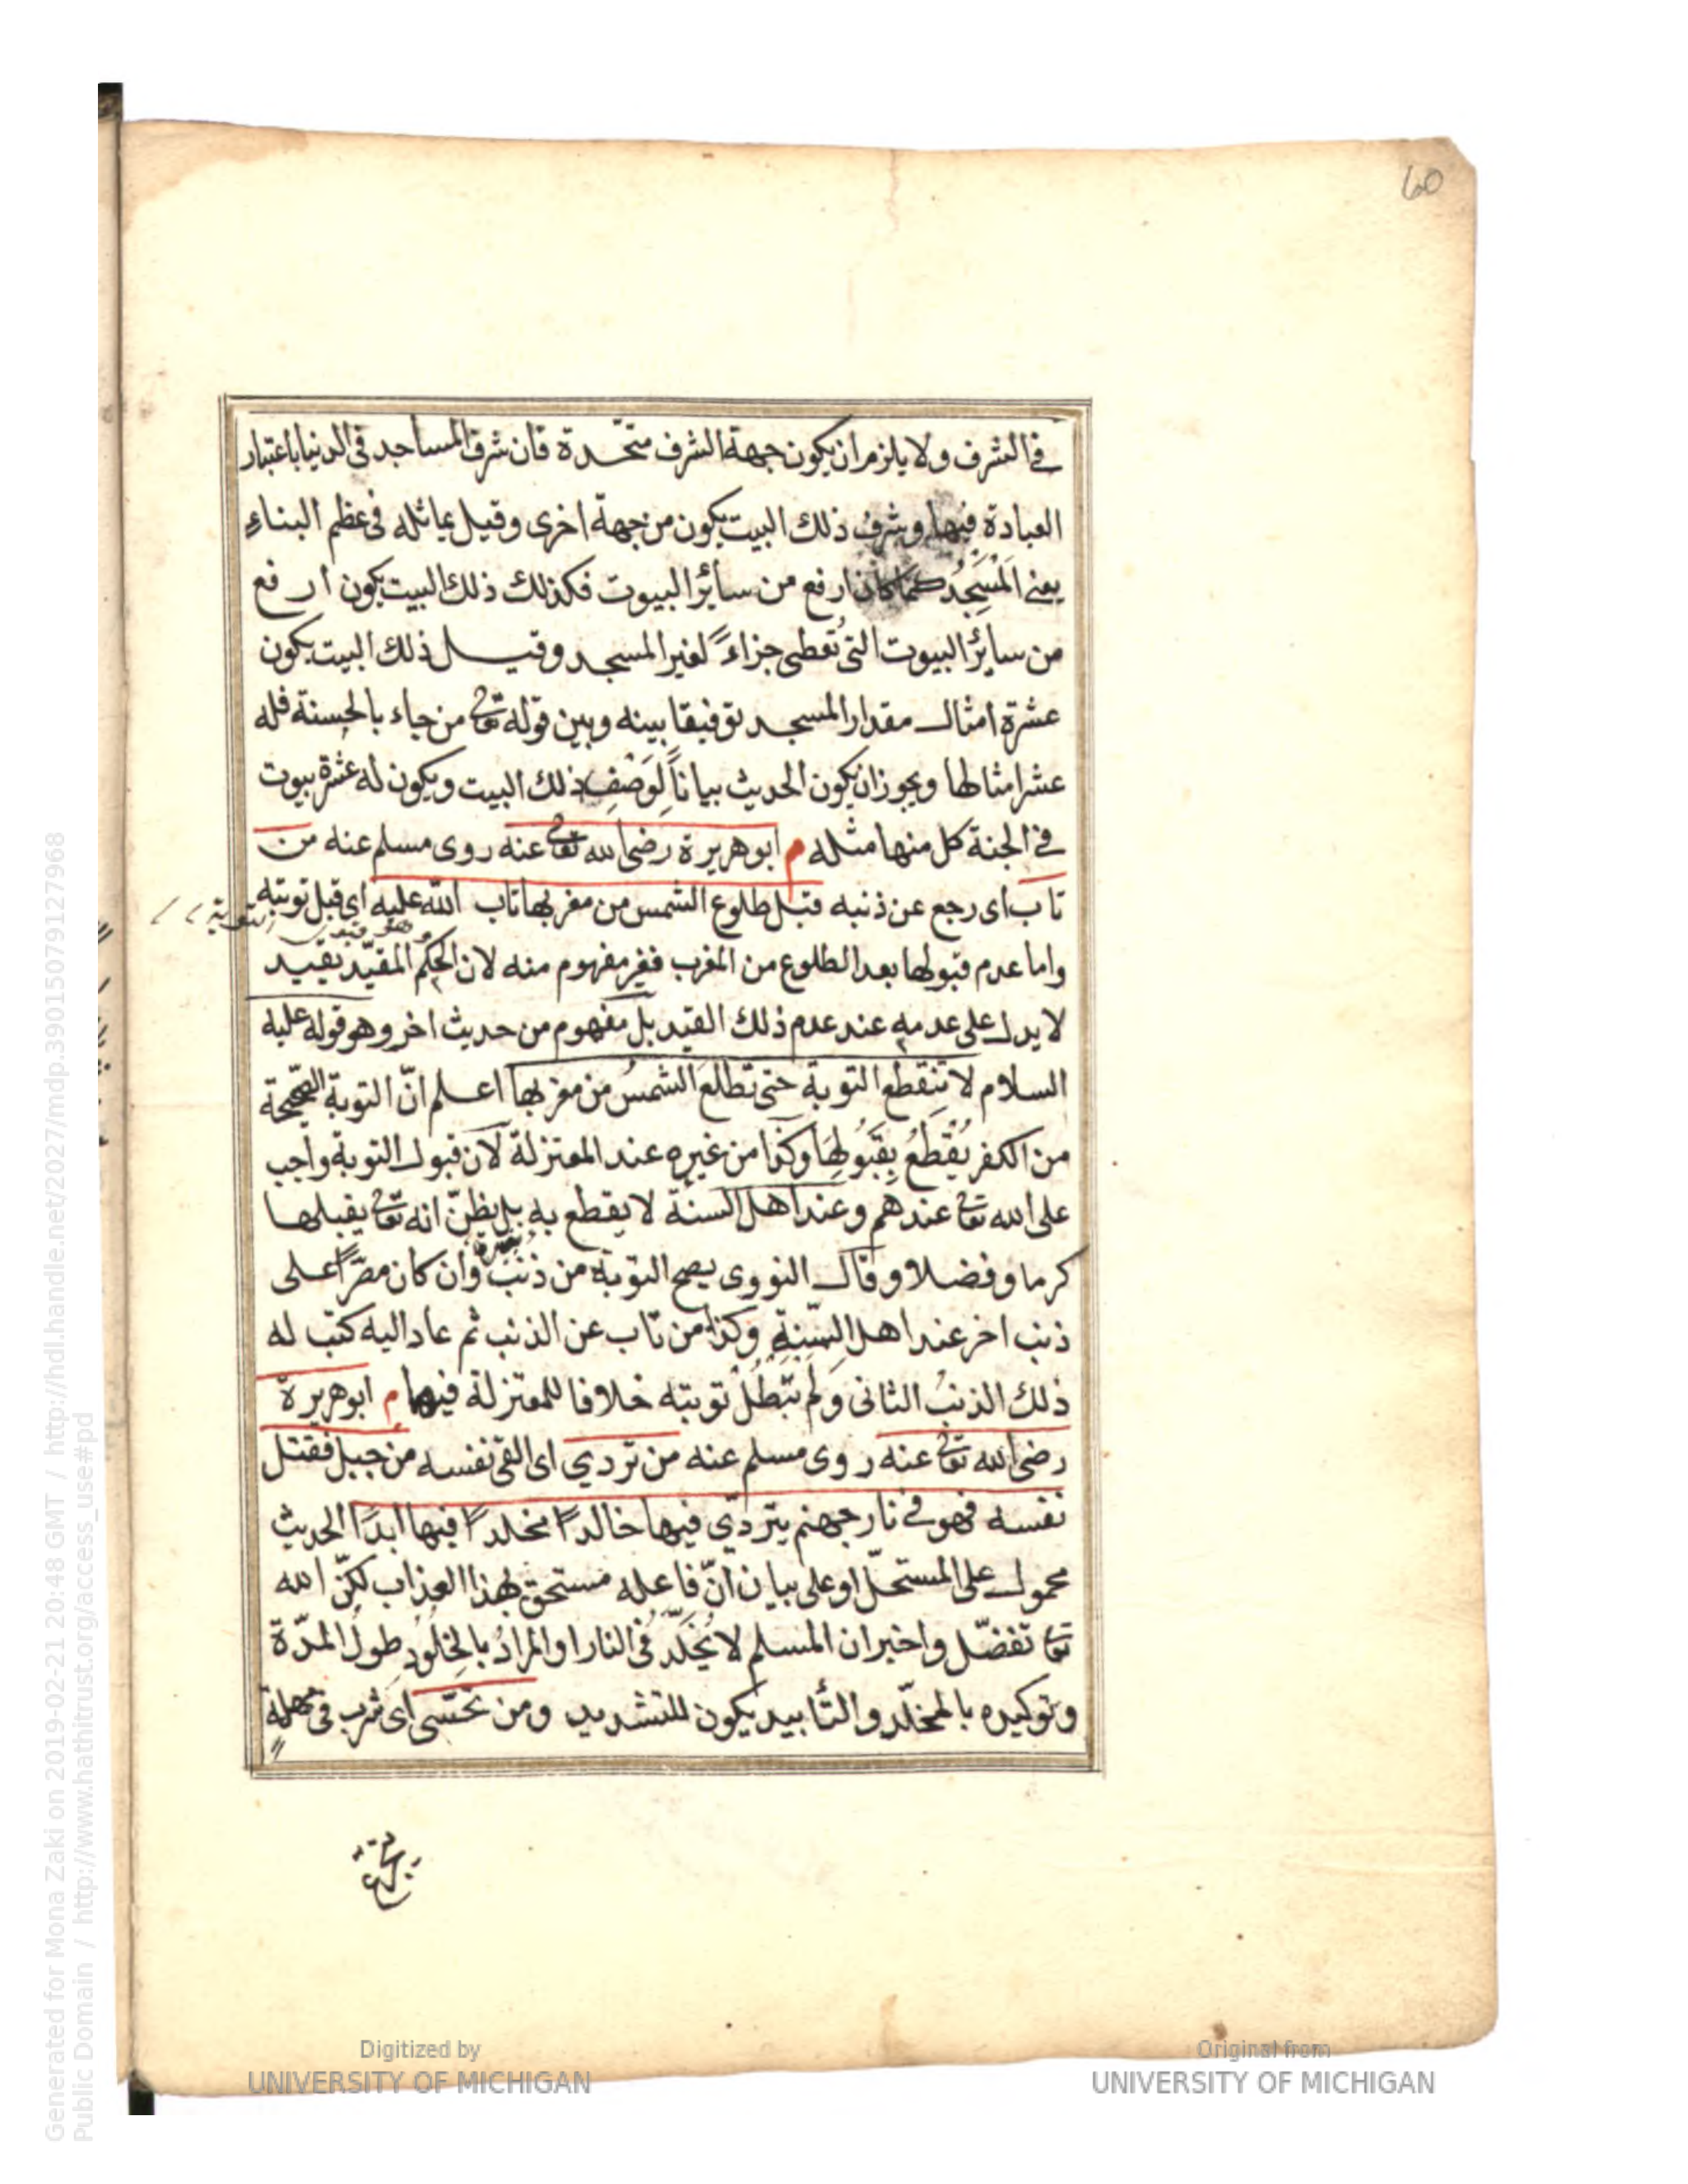 60
في الشرف ولا يلزم ان يكون جهة الشرف متحدة فان شرف المساجد في الدنيا باعتبار
العبادة فيها وشرفُ ذلك البيت يكون من جهة اخرى وقيل يماثله في عظم البناء
يعنى المَسْجِدُ كما كان ارفع من سائر البيوت فكذلك ذلك البيت يكون ارفع
من سائر البيوت التى تُعطى جزاءً لغير المسجد وقيل ذلك البيت يكون
عشرة امثال مقدار المسجد توفيقا بينه وبين قوله تعا من جاء بالحسنة فله
عشر امثالها ويجوز ان يكون الحديث بياناً لِوَصْفِ ذلك البيت ويكون له عشرة بيوت
في الجنة كل منها مثله م ابو هريرة رضى الله تعا عنه روى مسلم عنه من
تاب اى رجع عن ذنبه قبل طلوع الشمس من مغربها تاب الله عليه اى قبل توبته
واما عدم قبولها بعد الطلوع من المغرب فغير مفهوم منه لان الحكم المقيّد بقيد
لا يدل على عدمه عند عدم ذلك القيد بل مفهوم من حديث اخر وهو قوله عليه
السلام لا تنقطع التوبة حتى تطلعَ الشمسُ من مغربها اعلم انّ التوبة الصحيحة
من الكفر يُقْطَعُ بِقَبُولِهَا وكذا من غيره عند المعتزلة لان قبول التوبة واجب
على الله تعا عندهم وعند اهل السنة لا يقطع به بل يظنّ انه تعا يقبلها
كرما وفضلا وقال النووى يصح التوبة من ذنب وان كان مصرّاً على
ذنب اخر عند اهل السّنةِ وكذا من تاب عن الذنب ثم عاد اليه كتب له
ذلك الذنبُ الثانى وَلم تَبْطُلْ توبته خلافا للمعتزلة فيهما م ابو هريرة
رضى الله تعا عنه روى مسلم عنه من تردي اى القى نفسه من جبل فقتل
نفسه فهو في نار جهنم يتردّي فيها خالداً مخلداً فيها ابدًا الحديث
محمول على المستحلّ او على بيان انّ فاعله مستحق بهذا العذاب لكنّ الله
تعا تفضّل واخبر ان المسلم لا يُخَلَّدُ في النار او المرادُ بالخلُودِ طولُ المدّة
وتوكيده بالمخلّد والتأبيد يكون للتشديد ومن تحسّى اى شرب في مهلة
Generated for Mona Zaki on 2019-02-21 20:48 GMT / http://hdl.handle.net/2027/mdp.39015079127968
Public Domain / http://www.hathitrust.org/access_use#pd
Digitized by
UNIVERSITY OF MICHIGAN
Original from
UNIVERSITY OF MICHIGAN